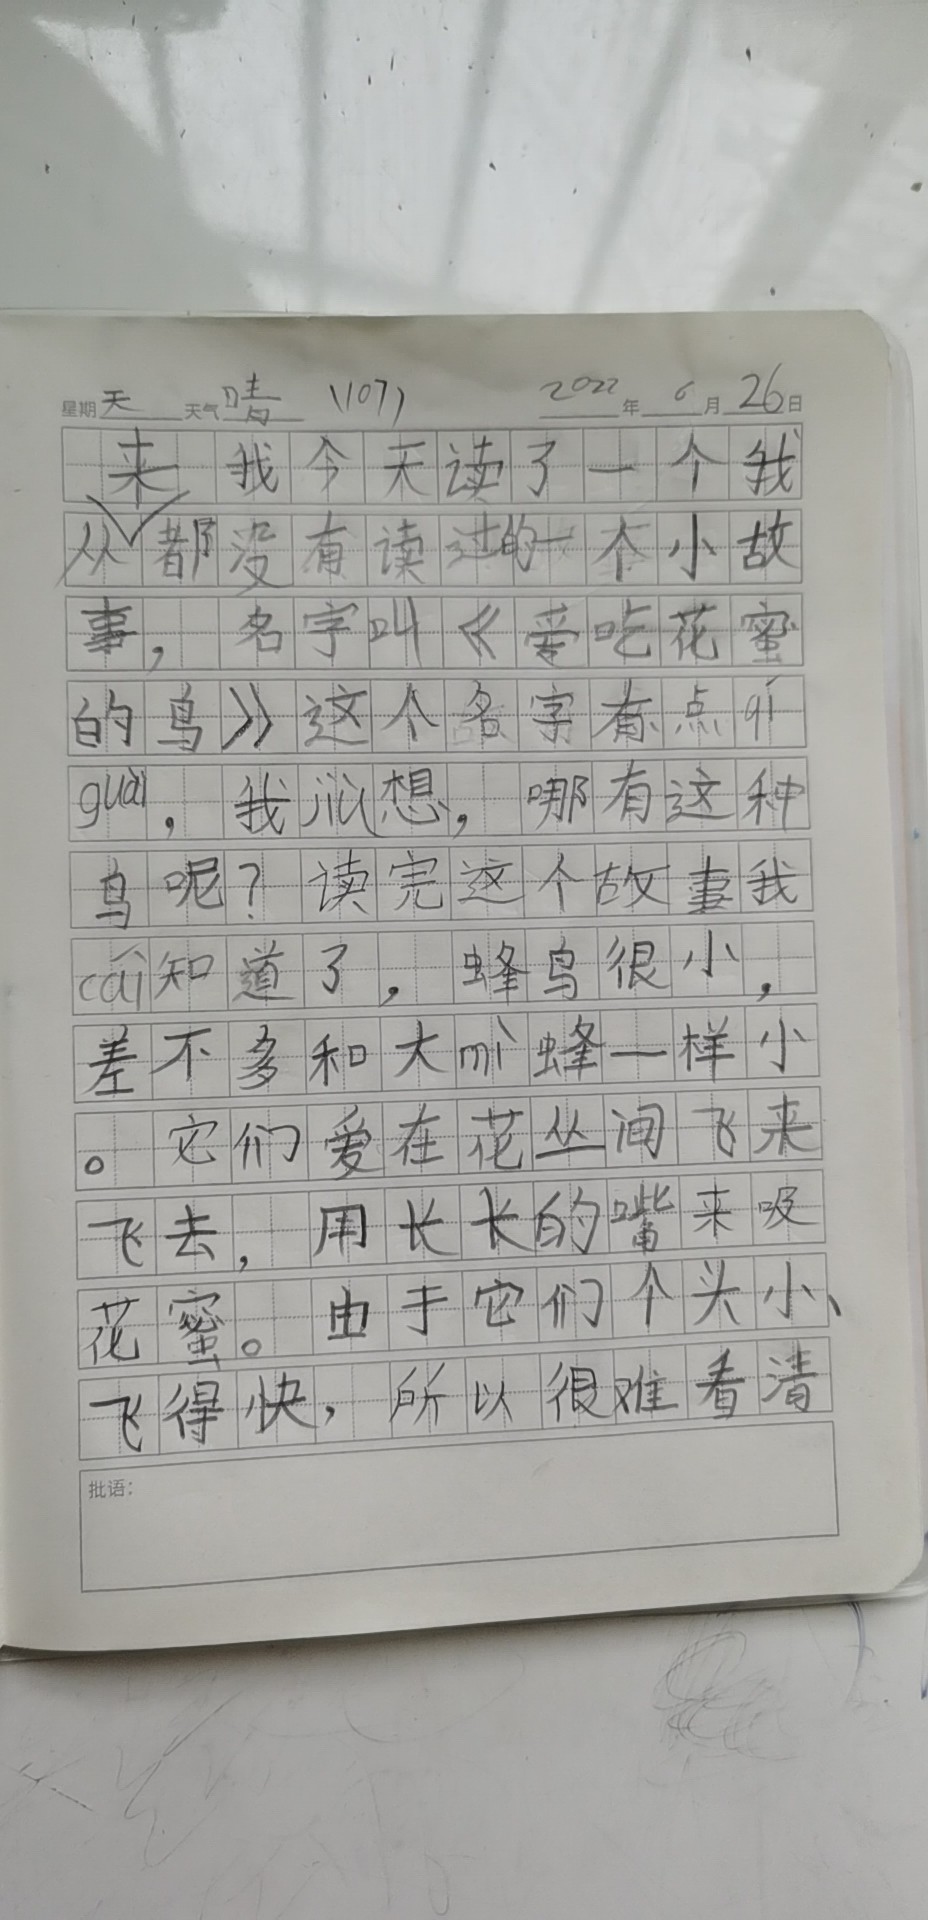 星期天 天气晴 (107) 2022年6月26日
来我今天读了一个我
从都没有读过的一个小故
事，名字叫《爱吃花蜜
的鸟》这个名字有点qí
guài，我心想，哪有这种
鸟呢？读完这个故事我
cái知道了，蜂鸟很小，
差不多和大mì蜂一样小
。它们爱在花丛间飞来
飞去，用长长的嘴来吸
花蜜。由于它们个头小、
飞得快，所以很难看清
批语：